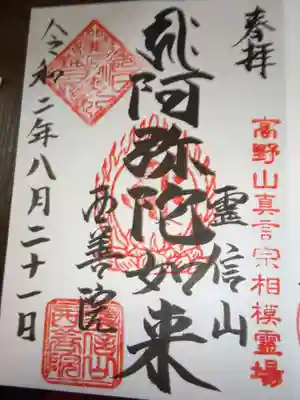 奉拝
高野山真言宗相模霊場
霊信山
阿弥陀如来
西善院
令和二年八月二十一日